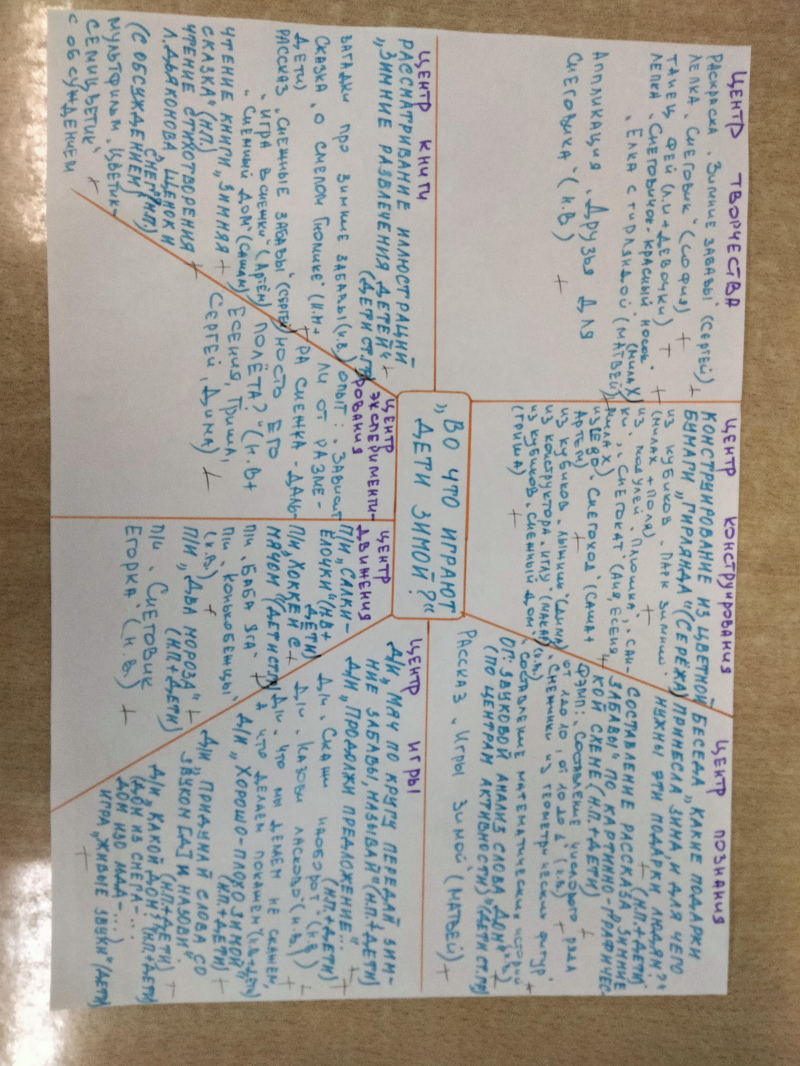 „ВО ЧТО ИГРАЮТ
ДЕТИ ЗИМОЙ?“
ЦЕНТР ТВОРЧЕСТВА
РАСКРАСКА „ЗИМНИЕ ЗАБАВЫ“ (СЕРГЕЙ) +
ЛЕПКА „СНЕГОВИК“ (СОФИЯ) +
ТАНЕЦ ФЕЙ (Л.И + ДЕВОЧКИ) +
ЛЕПКА „СНЕГОВИЧОК-КРАСНЫЙ НОСОК“ +
(МИЛА Х)
„ЕЛКА С ГИРЛЯНДОЙ“ (МАТВЕЙ) +
АППЛИКАЦИЯ „ДРУЗЬЯ ДЛЯ
СНЕГОВИКА“ (Н.В) +
ЦЕНТР КОНСТРУИРОВАНИЯ
КОНСТРУИРОВАНИЕ ИЗ ЦВЕТНОЙ
БУМАГИ „ГИРЛЯНДА“ (СЕРЁЖА)
ИЗ КУБИКОВ „ПАРК ЗИМНИЙ“
(МИЛА Х + ПОЛЯ) +
ИЗ МОДУЛЕЙ „ПЛЮШКА“, „САН-
КИ“, „СНЕГОКАТ“ (АНЯ, ЕСЕНИЯ +
МИЛА Х)
ИЗ LEGO „СНЕГОХОД“ (САША +
АРТЁМ) +
ИЗ КУБИКОВ „ЛЫЖНИЦЫ“ (ДИМА)
ИЗ КОНСТРУКТОРА „ИГЛУ“ (МАКАР)
ИЗ КУБИКОВ „СНЕЖНЫЙ ДОМ“
(ГРИША) +
ЦЕНТР ПОЗНАНИЯ
БЕСЕДА „КАКИЕ ПОДАРКИ
ПРИНЕСЛА ЗИМА, И ДЛЯ ЧЕГО
НУЖНЫ ЭТИ ПОДАРКИ ЛЮДЯМ?“
+ (Н.П. + ДЕТИ)
СОСТАВЛЕНИЕ РАССКАЗА „ЗИМНИЕ
ЗАБАВЫ“ ПО КАРТИННО-ГРАФИЧЕС
КОЙ СХЕМЕ (Н.П. + ДЕТИ) +
ФЭМП: „СОСТАВЛЕНИЕ ЧИСЛОВОГО РЯДА
ОТ 1 ДО 10, ОТ 10 ДО 1 (Н.В.) +
СНЕЖИНКИ ИЗ ГЕОМЕТРИЧЕСКИХ ФИГУР
(Н.В) +
СОСТАВЛЕНИЕ МАТЕМАТИЧЕСКИХ ИСТОРИЙ
(Н.В.) +
ОГ: ЗВУКОВОЙ АНАЛИЗ СЛОВА „ДОМ“ +
(ПО ЦЕНТРАМ АКТИВНОСТИ) (ДЕТИ СТ. ГР)
РАССКАЗ „ИГРЫ ЗИМОЙ“ (МАТВЕЙ) +
ЦЕНТР КНИГИ
РАССМАТРИВАНИЕ ИЛЛЮСТРАЦИЙ
„ЗИМНИЕ РАЗВЛЕЧЕНИЯ ДЕТЕЙ“ +
(ДЕТИ СТ. ГР)
ЗАГАДКИ ПРО ЗИМНИЕ ЗАБАВЫ (Н.В.)
СКАЗКА „О СМЕЛОМ ГНОМИКЕ“ (Н.Н +
ДЕТИ) +
РАССКАЗ „СНЕЖНЫЕ ЗАБАВЫ“ (СЕРГЕЙ)
„ИГРА В СНЕЖКИ“ (АРТЁМ)
„СНЕЖНЫЙ ДОМ“ (САША М)
ЧТЕНИЕ КНИГИ „ЗИМНЯЯ +
СКАЗКА“ (Н.П.)
ЧТЕНИЕ СТИХОТВОРЕНИЯ
Л. ДЬЯКОНОВА „ЩЕНОК И +
СНЕГ“ (Н.П.)
(С ОБСУЖДЕНИЕМ)
МУЛЬТФИЛЬМ „ЦВЕТИК-
СЕМИЦВЕТИК“ +
С ОБСУЖДЕНИЕМ
ЦЕНТР
ЭКСПЕРИМЕНТИ-
РОВАНИЯ
ОПЫТ: „ЗАВИСИТ
ЛИ ОТ РАЗМЕ-
РА СНЕЖКА - ДАЛЬ-
НОСТЬ ЕГО
ПОЛЁТА?“ (Н.В +
ЕСЕНИЯ, ГРИША,
СЕРГЕЙ, ДИМА) +
ЦЕНТР
ДВИЖЕНИЯ
П/И „САЛКИ-
ЁЛОЧКИ“ (Н.В +
ДЕТИ)
П/И „ХОККЕЙ С +
МЯЧОМ“ (ДЕТИ СТ ГР)
П/И „БАБА ЯГА“
П/И „КОНЬКОБЕЖЦЫ“
(Н.В) +
П/И „ДВА МОРОЗА“ +
(Н.П. + ДЕТИ)
П/И „СНЕГОВИК
ЕГОРКА“ (Н.В.) +
ЦЕНТР ИГРЫ
Д/И „МЯЧ ПО КРУГУ ПЕРЕДАЙ ЗИМ-
НИЕ ЗАБАВЫ, НАЗЫВАЙ“ (Н.П. + ДЕТИ)
Д/И „ПРОДОЛЖИ ПРЕДЛОЖЕНИЕ...“ +
(Н.П. + ДЕТИ)
Д/И „СКАЖИ НАОБОРОТ“ (Н.В) +
Д/И „НАЗОВИ ЛАСКОВО“ (Н.В.) +
Д/И „ЧТО МЫ ДЕЛАЕМ НЕ СКАЖЕМ,
А ЧТО ДЕЛАЕМ ПОКАЖЕМ“ (Н.В. + ДЕТИ) +
Д/И „ХОРОШО-ПЛОХО ЗИМОЙ“
(Н.П. + ДЕТИ) +
Д/И „ПРИДУМАЙ СЛОВА СО
ЗВУКОМ [Д] И НАЗОВИ“.
(Н.П. + ДЕТИ) +
Д/И „КАКОЙ ДОМ?“ (Н.П. + ДЕТИ)
(ДОМ ИЗ СНЕГА-...
ДОМ ИЗО ЛЬДА-...) +
ИГРА „ЖИВЫЕ ЗВУКИ“ (ДЕТИ) +